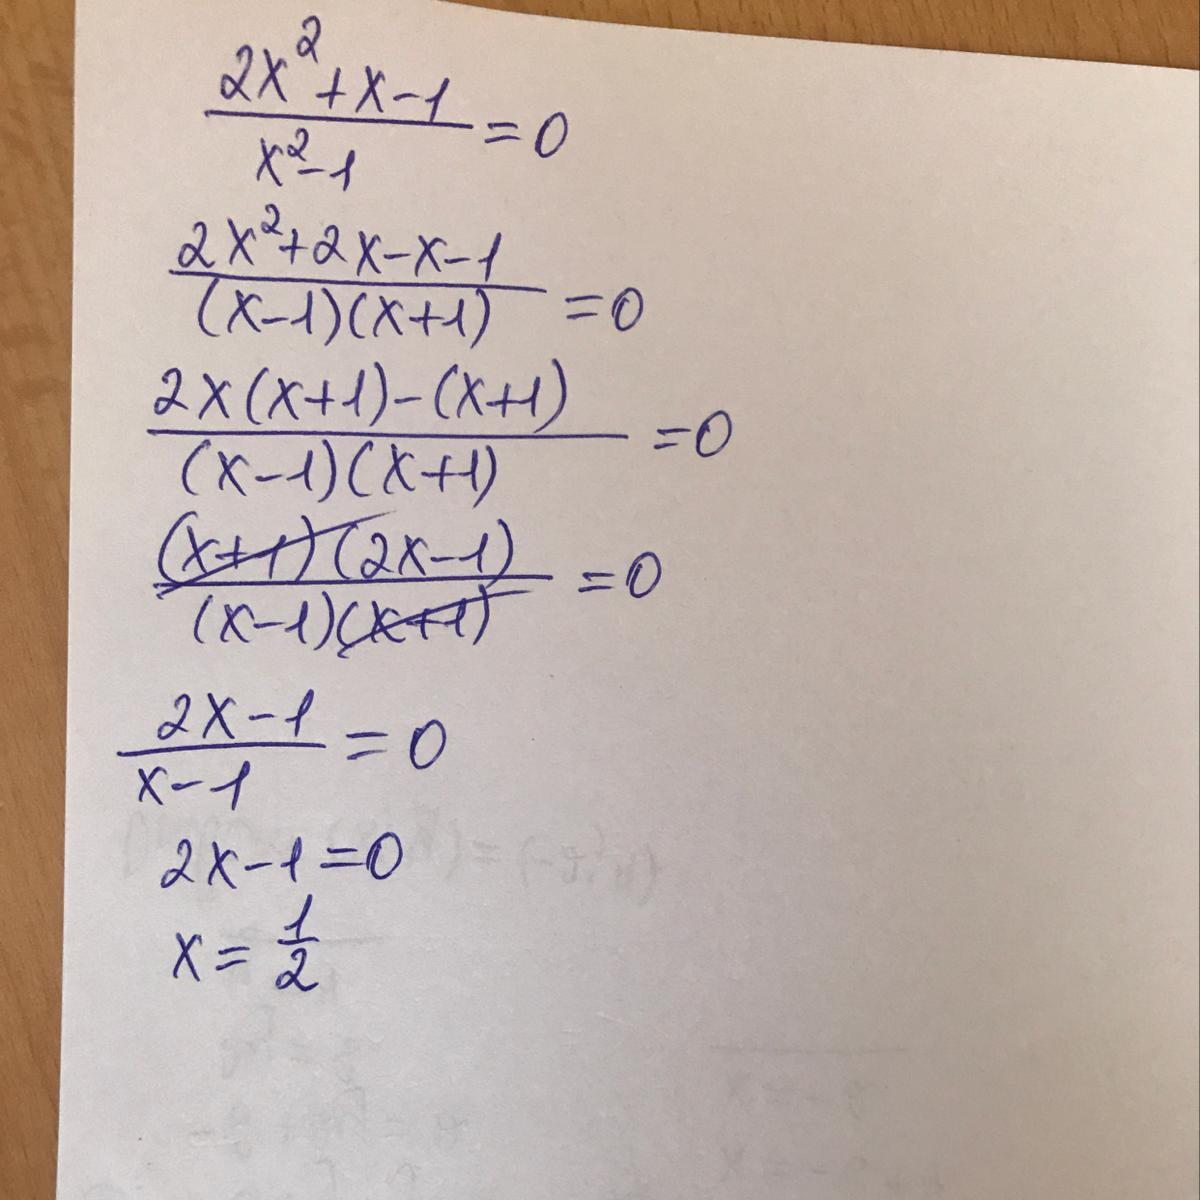 (2x²+x-1)/(x²-1)=0
(2x²+2x-x-1)/((x-1)(x+1))=0
(2x(x+1)-(x+1))/((x-1)(x+1))=0
((x+1)(2x-1))/((x-1)(x+1))=0
(2x-1)/(x-1)=0
2x-1=0
x=1/2